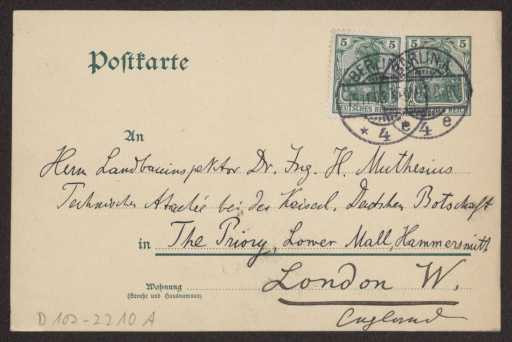 Postkarte
5 5
5 5
BERLIN BERLIN
DEUTSCHES REICH
* 4 e 4 e
An
Herrn Landbauinspektor Dr. Ing. H. Muthesius
Technischer Attaché bei der Kaiserl. Deutschen Botschaft
in The Priory, Lower Mall, Hammersmith
Wohnung London W.
(Straße und Hausnummer)
England
D 102-2210 A